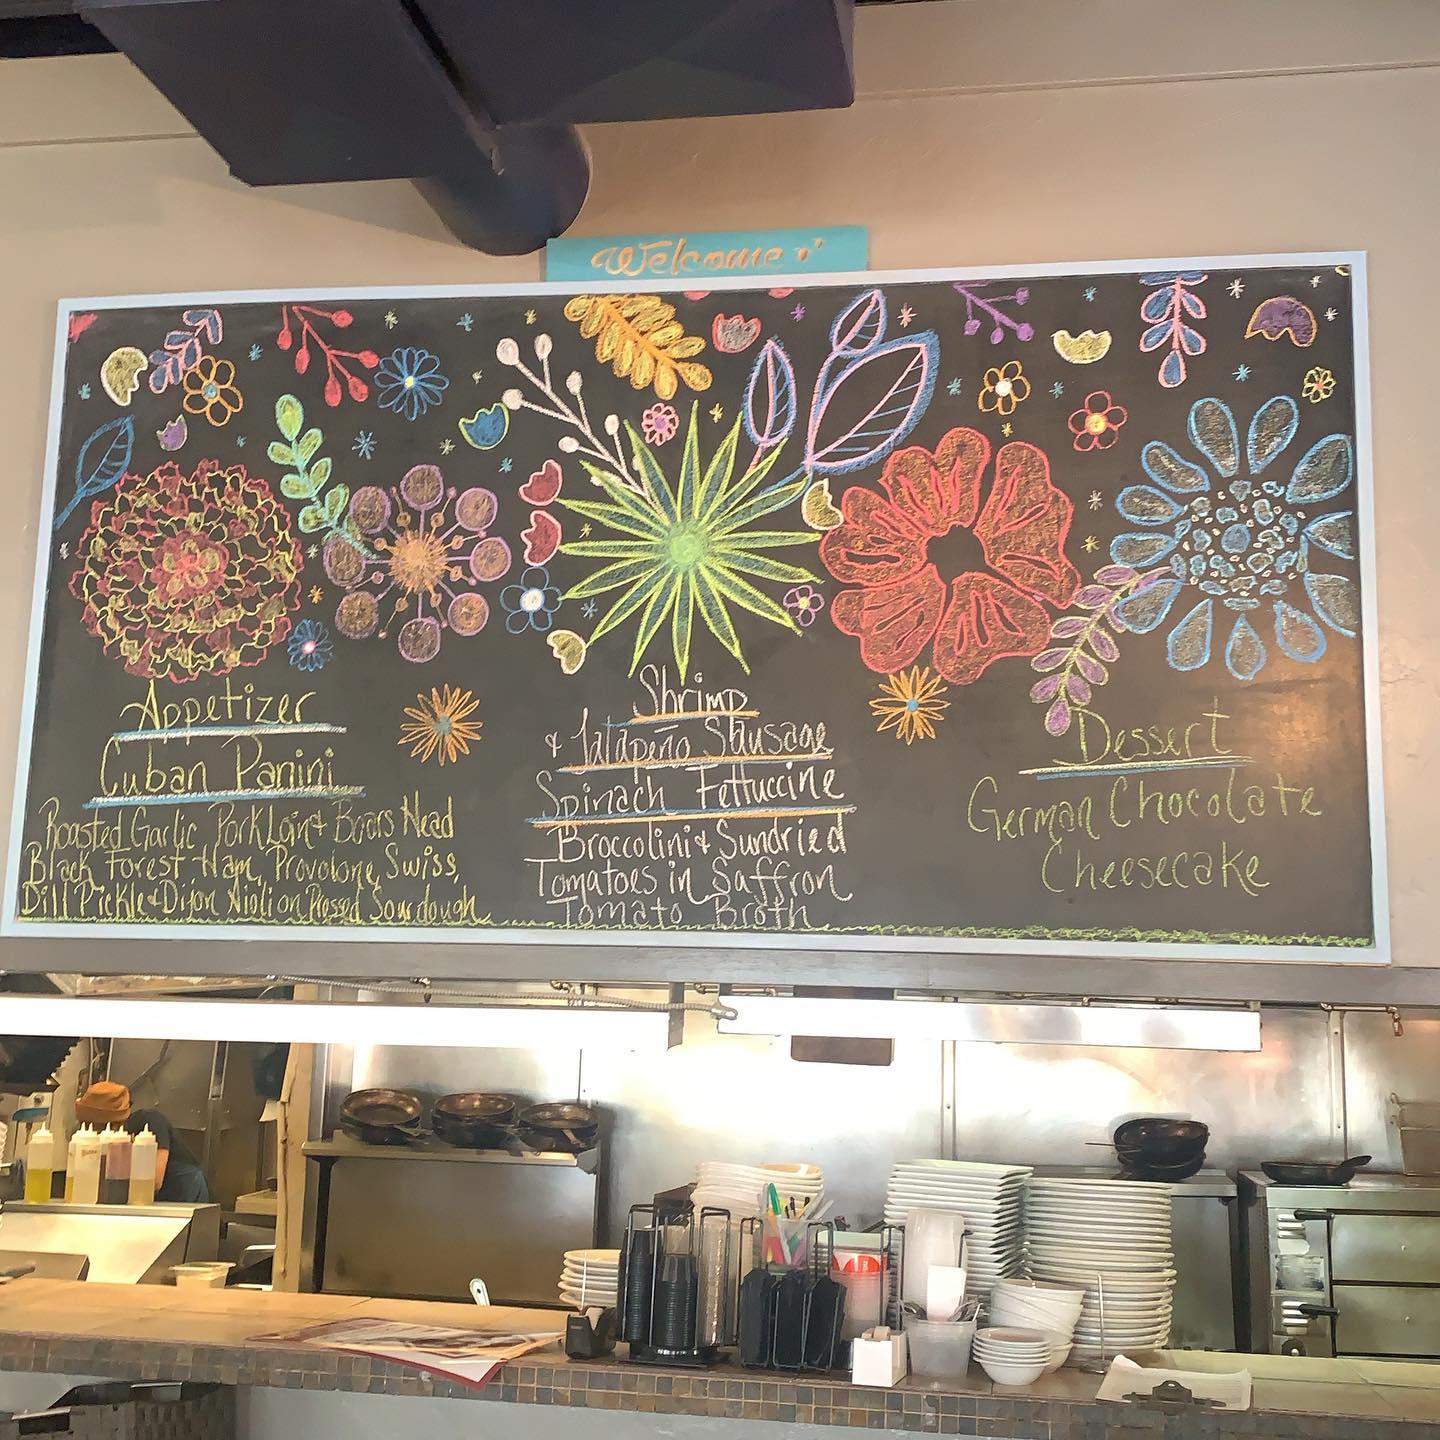 Welcome
Appetizer
Cuban Panini
Roasted Garlic Pork Loin & Boars Head
Black Forest Ham, Provolone, Swiss,
Dill Pickle & Dijon Aioli on Pressed Sourdough
Shrimp
& Jalapeño Sausage
Spinach Fettuccine
Broccolini & Sundried
Tomatoes in Saffron
Tomato Broth
Dessert
German Chocolate
Cheesecake